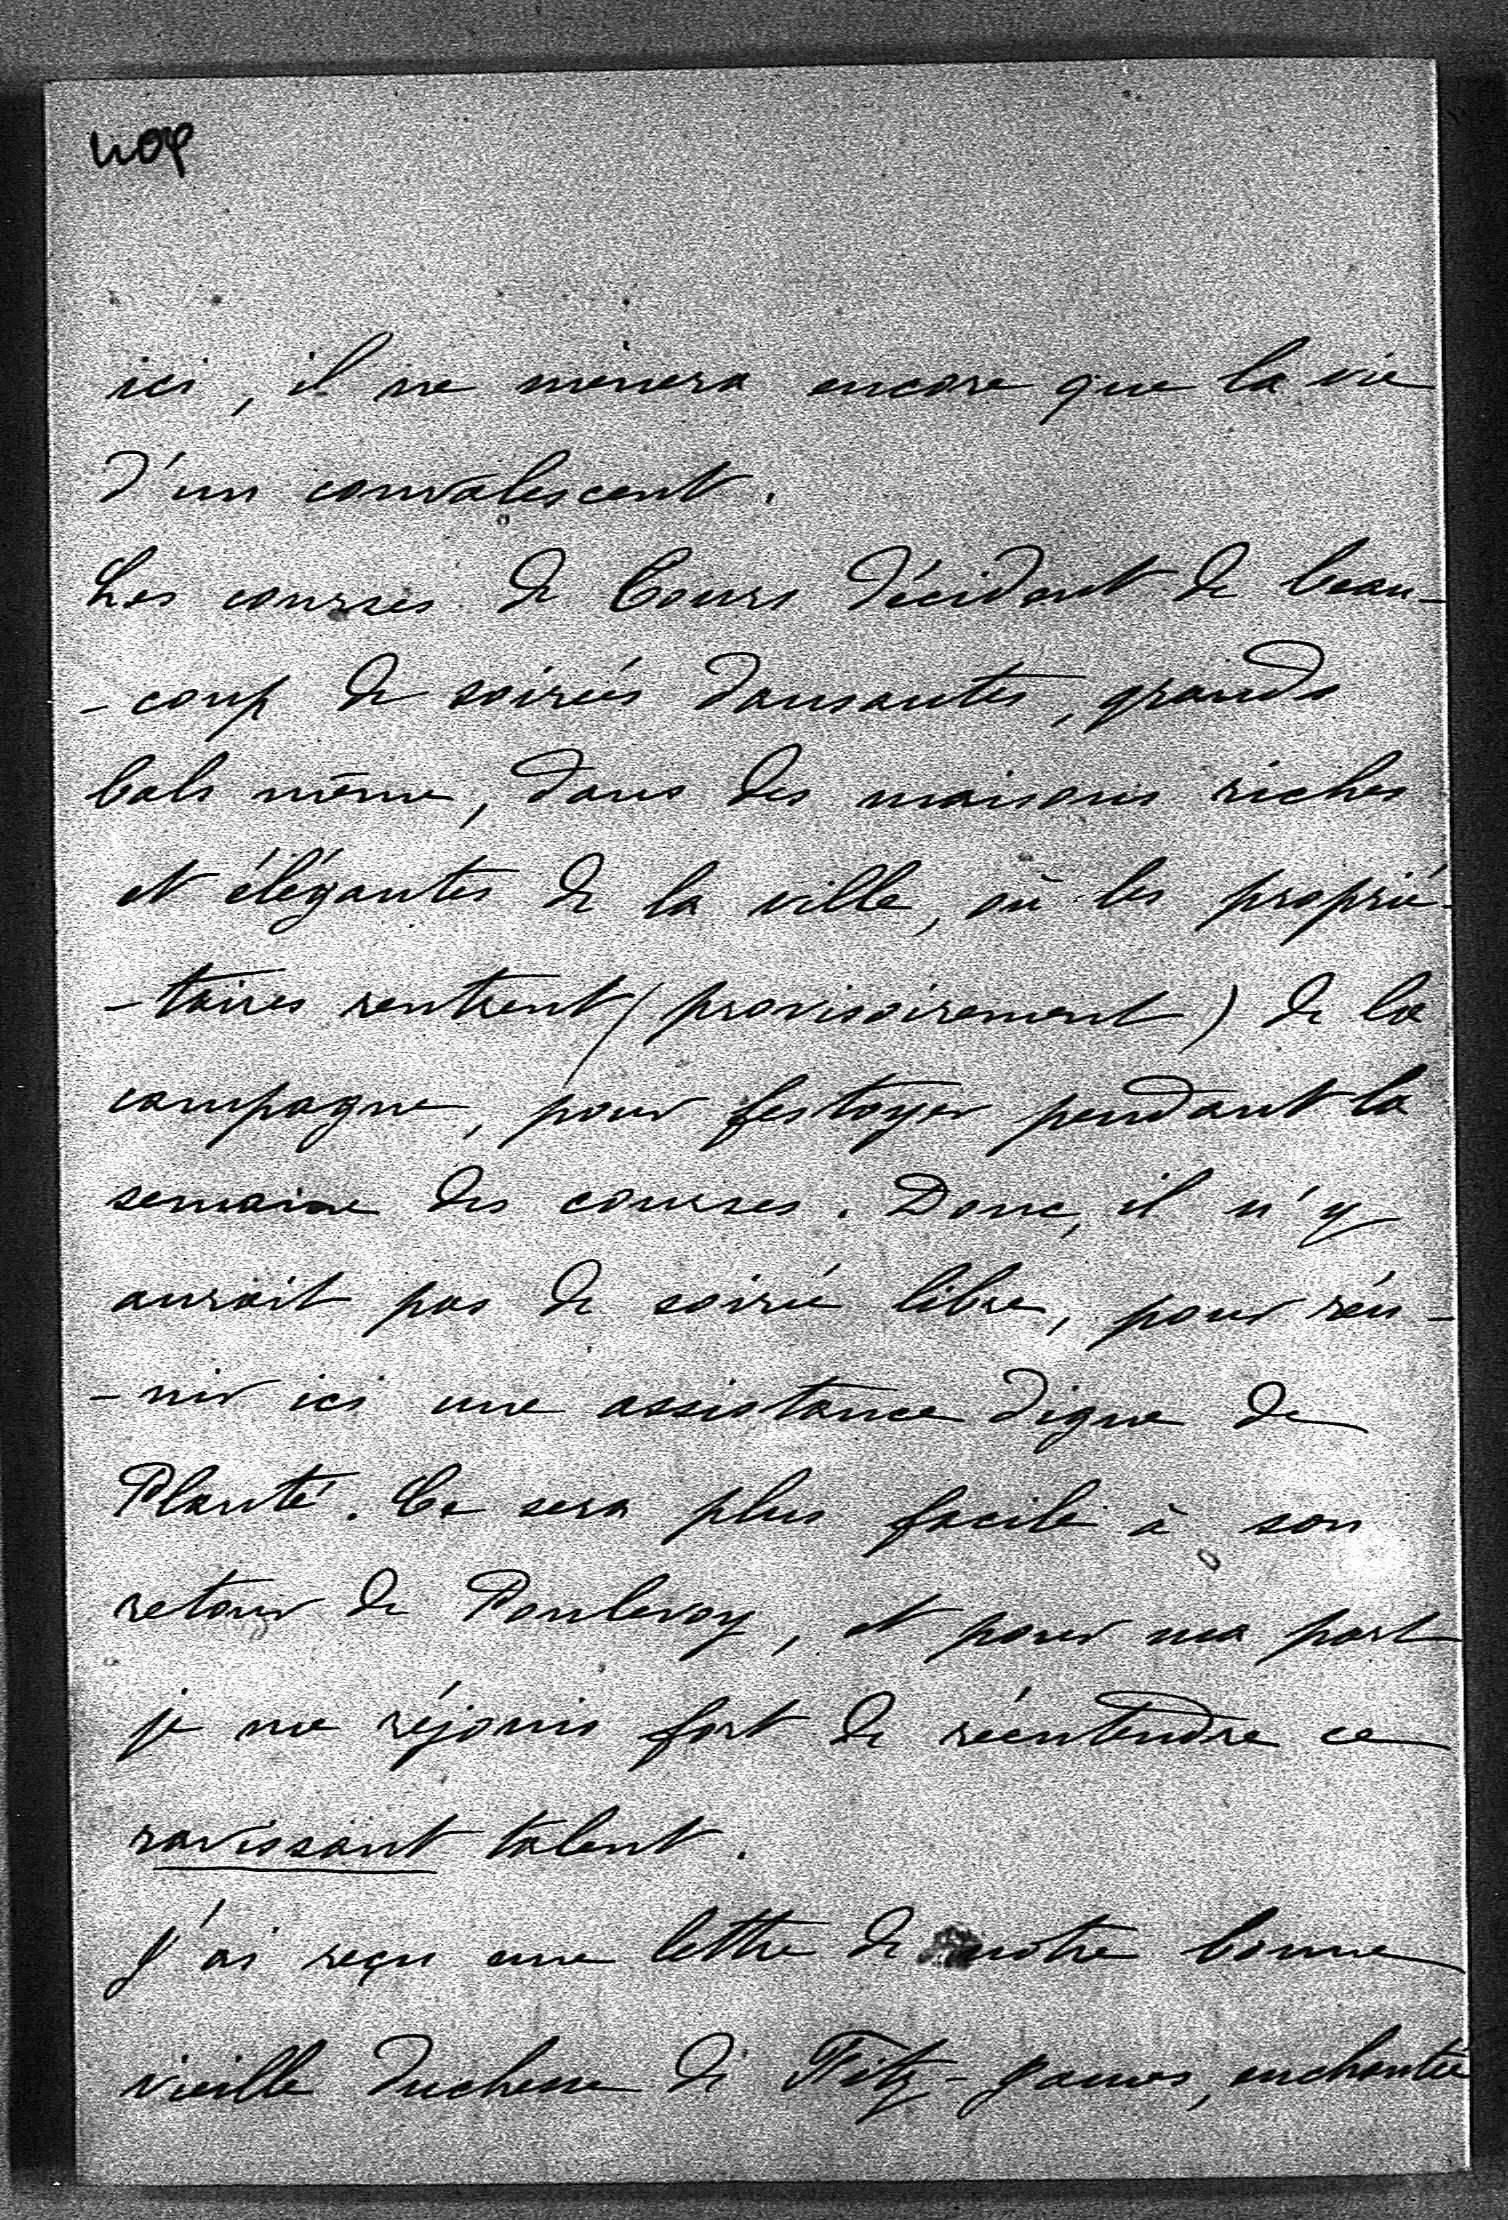 ici, il ne mènera encore que la vie
d'un convalescent.
Les courses de Tours décident de beau-
-coup de soirées dansantes, grands
bals même, dans des maisons riches
et élégantes de la ville, où les proprié-
-taires rentrent (provisoirement) de la
campagne, pour festoyer pendant la
semaine des courses. Donc, il n'y
aurait pas de soirée libre, pour réu-
-nir ici une assistance digne de
Planté. Ce sera plus facile à son
retour de Pontlevoy, et pour ma part
je me réjouis fort de réentendre ce
ravissant talent.
J'ai reçu une lettre de notre bonne
vieille duchesse de Fitz-James, enchantée